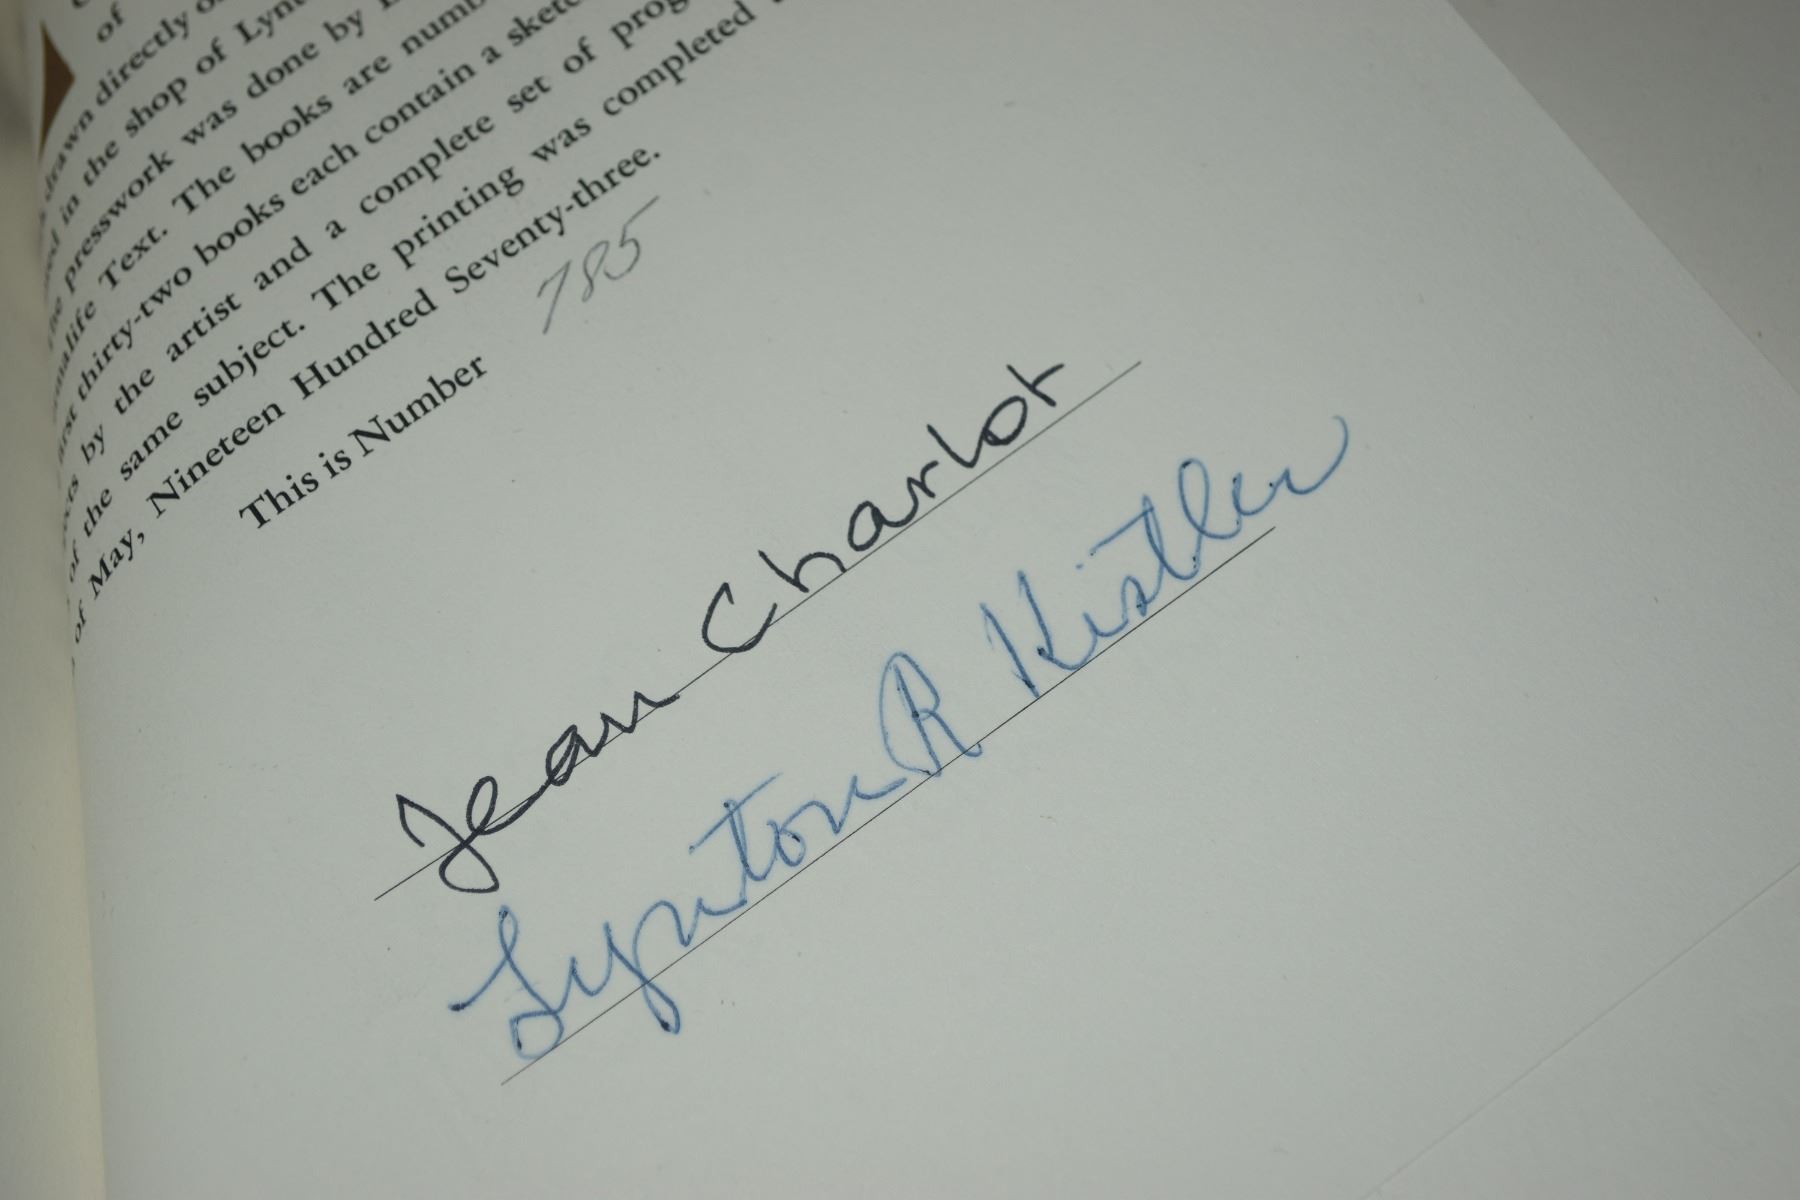 of
drawn directly
in the shop of
presswork was done by
Text. The books are
first thirty-two books each contain a
by the artist and a complete set of
of the same subject. The printing was completed
of May, Nineteen Hundred Seventy-three.
This is Number 785
Jean Charlot
Lynton R Kistler